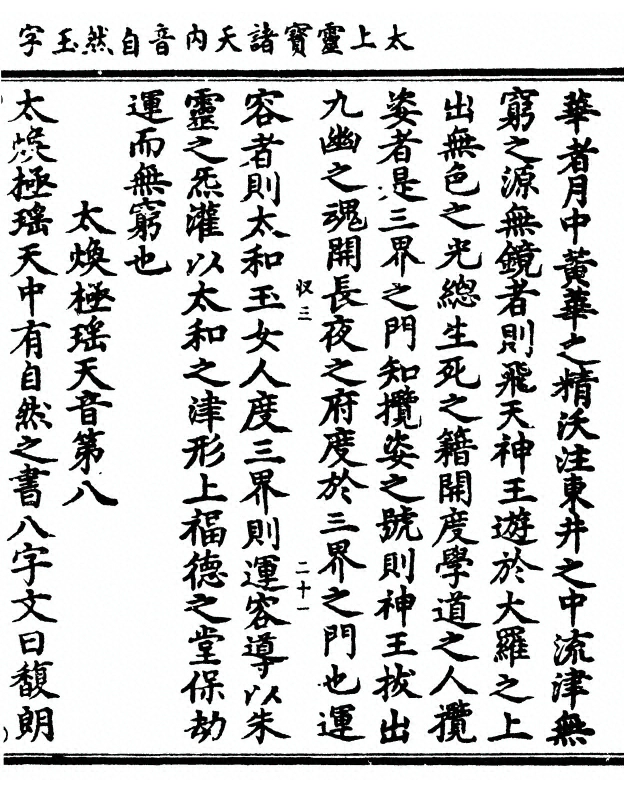 太上靈寶諸天內音自然玉字
華者月中黃華之精沃注東井之中流津無
窮之源無鏡者則飛天神王遊於大羅之上
出無色之光總生死之籍開度學道之人攬
姿者是三界之門知攬姿之號則神王拔出
九幽之魂開長夜之府度於三界之門也運
収三
二十一
容者則太和玉女人度三界則運容導以朱
靈之炁灌以太和之津形上福德之堂保劫
運而無窮也
太煥極瑤天音第八
太煥極瑤天中有自然之書八字文曰馥朗